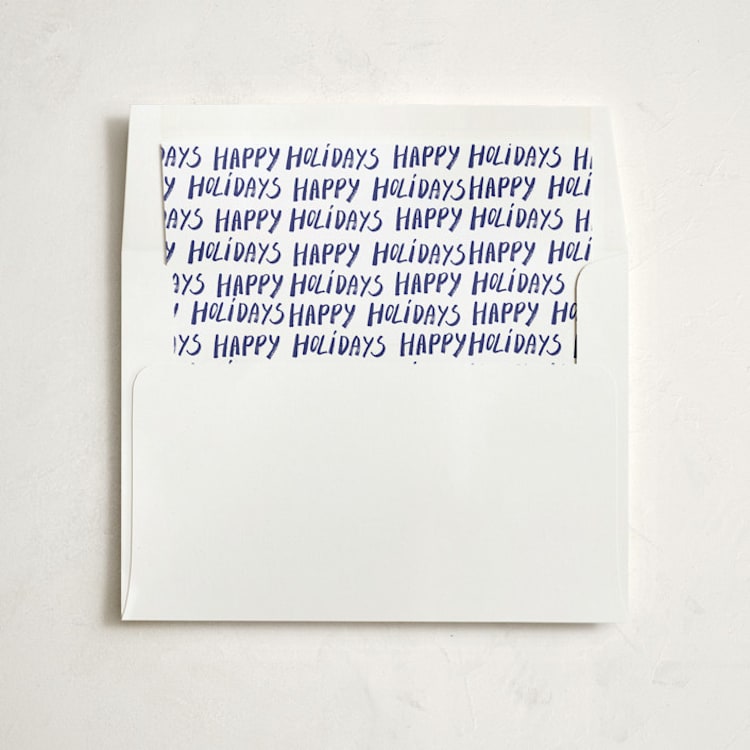 AYS HAPPY HOLíDAYS HAPPY HOLíDAYS H
Y HOLíDAYS HAPPY HOLíDAYS HAPPY HOLí
AYS HAPPY HOLíDAYS HAPPY HOLíDAYS H
Y HOLíDAYS HAPPY HOLíDAYS HAPPY HOLí
AYS HAPPY HOLíDAYS HAPPY HOLíDAYS
HOLíDAYS HAPPY HOLíDAYS HAPPY HO
YS HAPPY HOLíDAYS HAPPY HOLíDAYS